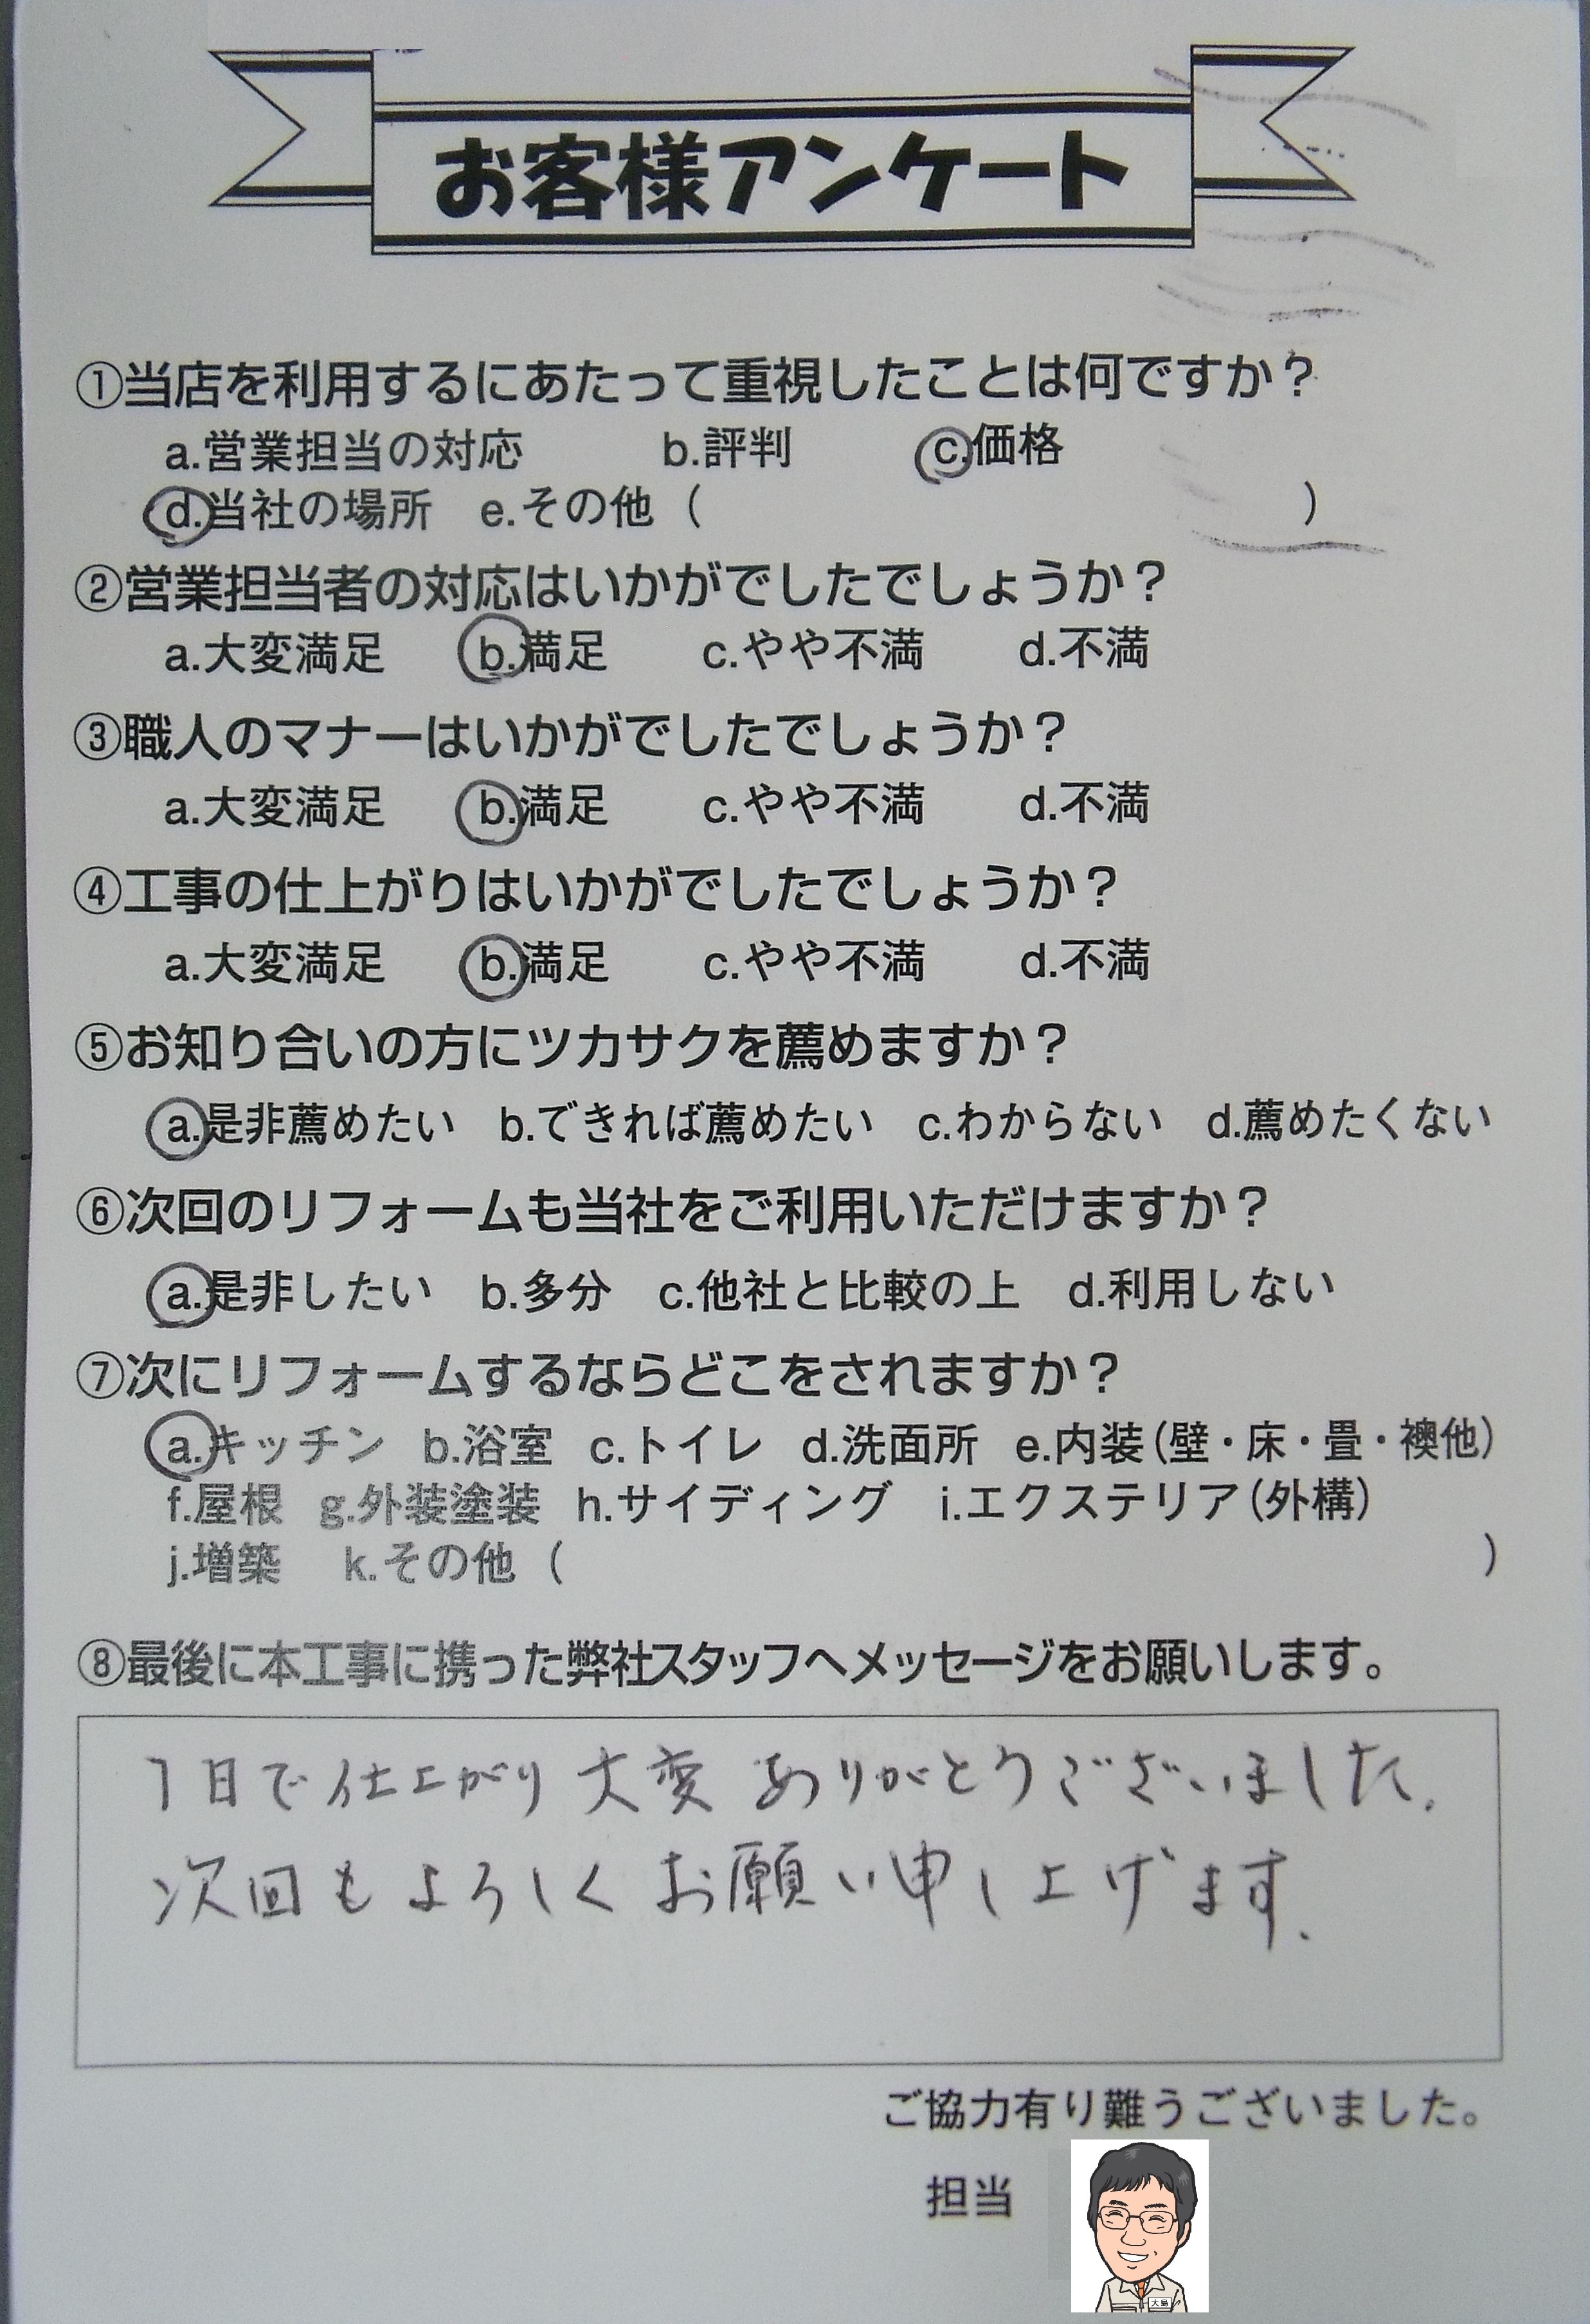 お客様アンケート
①当店を利用するにあたって重視したことは何ですか？
a.営業担当の対応 b.評判 c.価格
d.当社の場所 e.その他 ( )
②営業担当者の対応はいかがでしたでしょうか？
a.大変満足 b.満足 c.やや不満 d.不満
③職人のマナーはいかがでしたでしょうか？
a.大変満足 b.満足 c.やや不満 d.不満
④工事の仕上がりはいかがでしたでしょうか？
a.大変満足 b.満足 c.やや不満 d.不満
⑤お知り合いの方にツカサクを薦めますか？
a.是非薦めたい b.できれば薦めたい c.わからない d.薦めたくない
⑥次回のリフォームも当社をご利用いただけますか？
a.是非したい b.多分 c.他社と比較の上 d.利用しない
⑦次にリフォームするならどこをされますか？
a.キッチン b.浴室 c.トイレ d.洗面所 e.内装(壁・床・畳・襖他)
f.屋根 g.外装塗装 h.サイディング i.エクステリア(外構)
j.増築 k.その他 ( )
⑧最後に本工事に携った弊社スタッフへメッセージをお願いします。
1日で仕上がり大変ありがとうございました.
次回もよろしくお願い申し上げます.
ご協力有り難うございました。
担当
大島